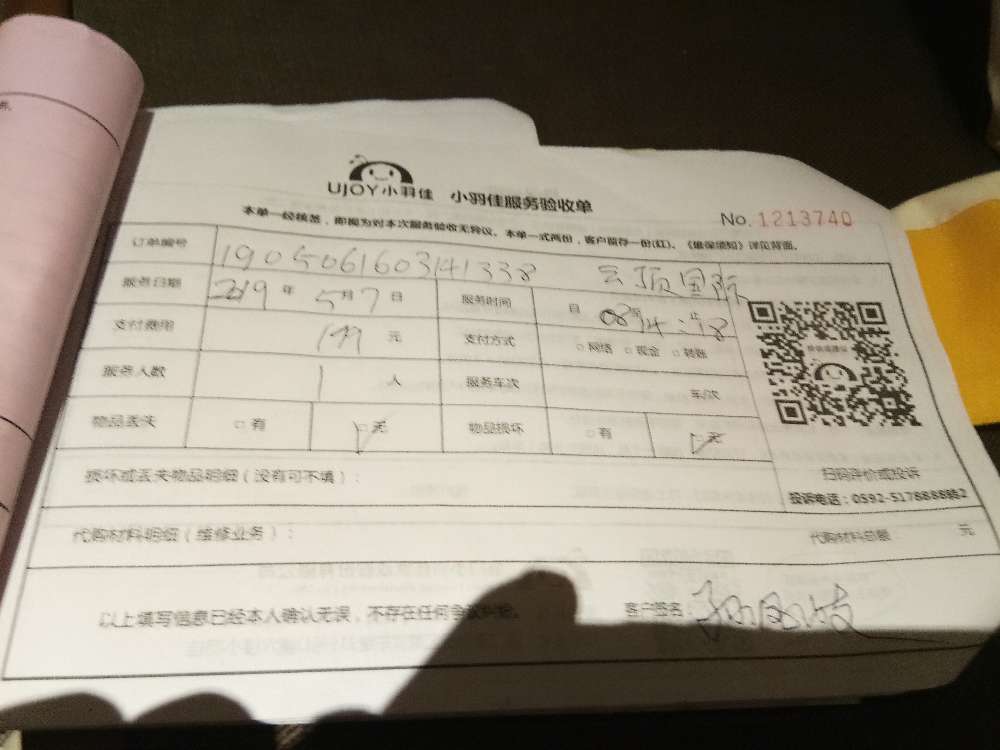 UJOY小羽佳 小羽佳服务验收单
No. 1213740
本单一经核签，即视为对本次服务验收无异议。本单一式两份，客户留存一份(红)。《维保须知》详见背面。
订单编号 1905061603141338 云顶国际
服务日期 2019 年 5月7日 服务时间 自 08时 14:18
支付费用 199 元 支付方式 □网络 □现金 □转账
服务人数 1 人 服务车次 车/次
物品丢失 □有 □无 物品损坏 □有 □无
扫码评价或投诉
损坏或丢失物品明细(没有可不填)：
投诉电话：0592-5178888转2
代购材料明细(维修业务)： 代购材料总额： 元
以上填写信息已经本人确认无误，不存在任何争议纠纷。 客户签名：